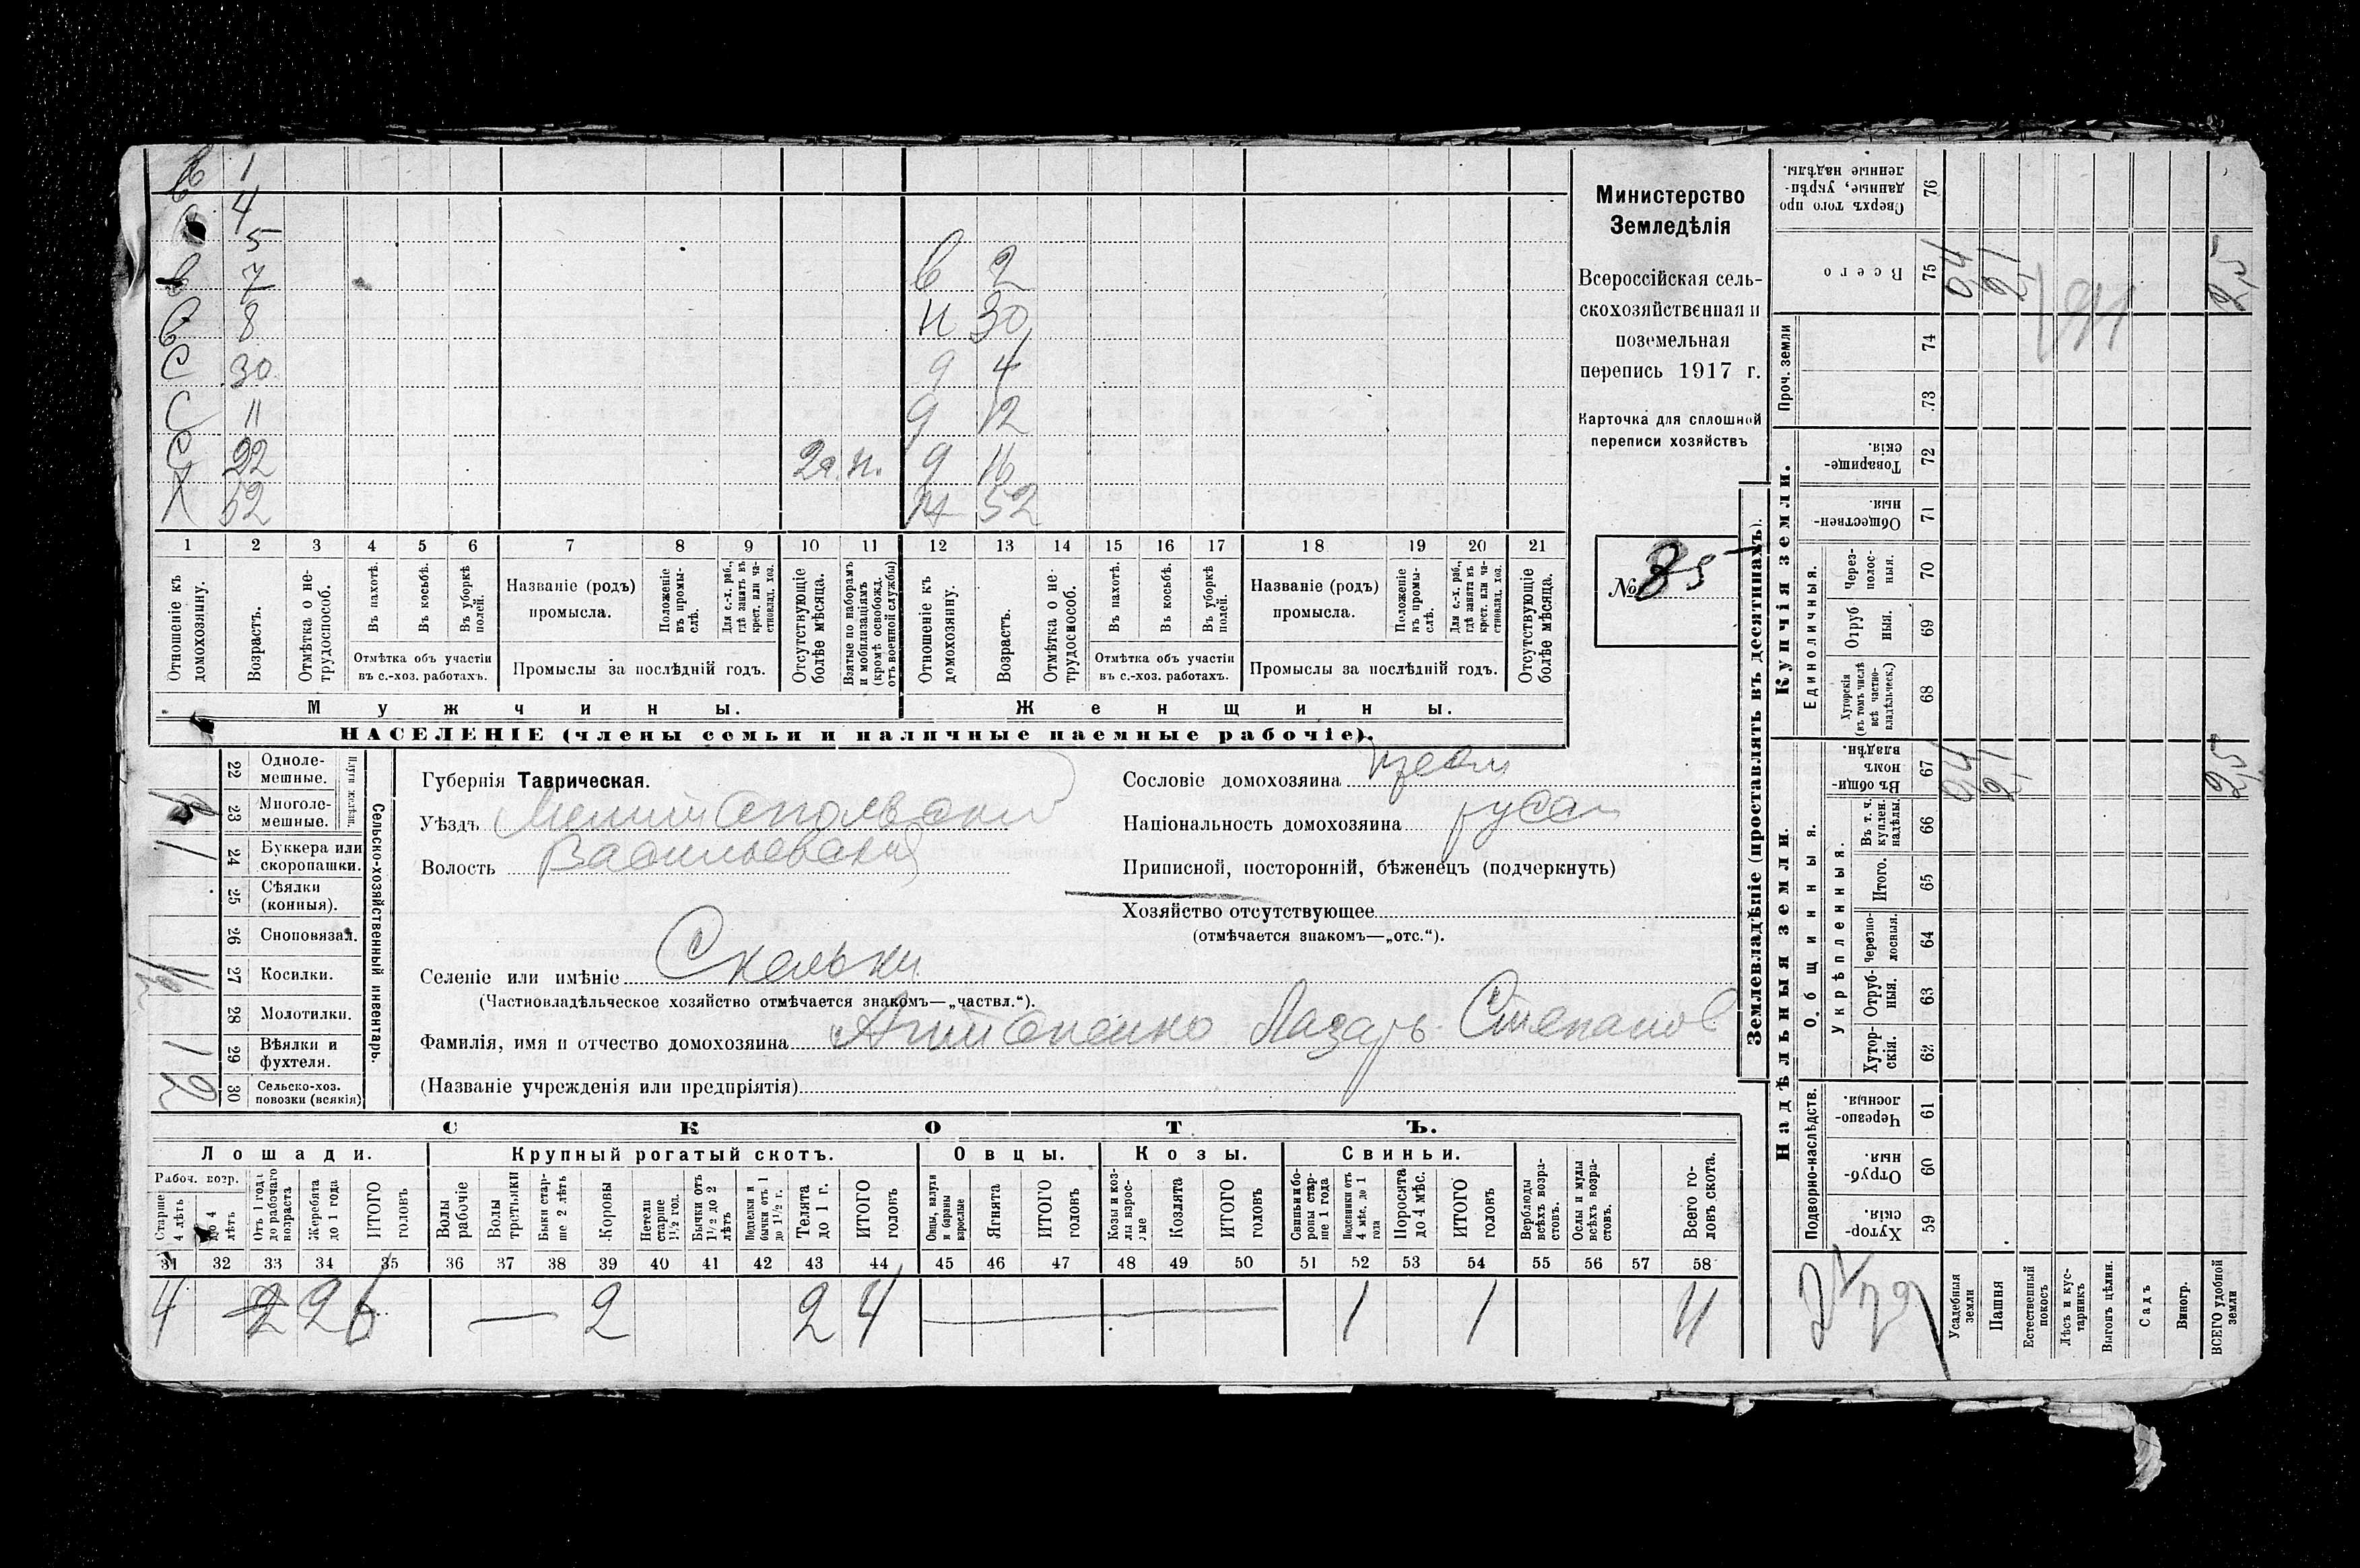 в 1
4
5
в 7 в 2
в 8 н 30
с 30 9 4
с 11 9 12
с 22 2я. н. 9 16
Х 52 ж 52
1 2 3 4 5 6 7 8 9 10 11 12 13 14 15 16 17 18 19 20 21
Отношеніе къ домохозяину.
Возрастъ.
Отмѣтка о нетрудоспособ.
Въ пахотѣ.
Въ косьбѣ.
Въ уборкѣ полей.
Отмѣтка объ участіи
въ с.-хоз. работахъ.
Названіе (родъ)
промысла.
Положеніе въ промыслѣ.
Для с.-х. раб., гдѣ занятъ въ крест. или частновлад. хоз.
Промыслы за послѣдній годъ.
Отсутствующіе болѣе мѣсяца.
Взятые по наборамъ и мобилизаціямъ (кромѣ освобожд. отъ военной службы)
Отношеніе къ домохозяину.
Возрастъ.
Отмѣтка о нетрудоспособ.
Въ пахотѣ.
Въ косьбѣ.
Въ уборкѣ полей.
Отмѣтка объ участіи
въ с.-хоз. работахъ.
Названіе (родъ)
промысла.
Положеніе въ промыслѣ.
Для с.-х. раб., гдѣ занята въ крест. или частновлад. хоз.
Промыслы за послѣдній годъ.
Отсутствующіе болѣе мѣсяца.
Мужчины. Женщины.
НАСЕЛЕНІЕ (члены семьи и наличные наемные рабочіе).
Министерство
Земледѣлія
Всероссійская сель-
скохозяйственная и
поземельная
перепись 1917 г.
Карточка для сплошной
переписи хозяйствъ
№ 85
22 Одноле-
мешные.
23 Многоле-
мешные.
Плуги желѣзн.
24 Буккера или
скоропашки.
25 Сѣялки
(конныя).
26 Сноповязал.
27 Косилки.
28 Молотилки.
29 Вѣялки и
фухтеля.
30 Сельско-хоз.
повозки (всякія)
Сельско-хозяйственный инвентарь.
1
1
1
2
Губернія Таврическая.
Уѣздъ Мелитопольский
Волость Васильевская
Селеніе или имѣніе Скельки
(Частновладѣльческое хозяйство отмѣчается знакомъ—„частвл.“).
Фамилія, имя и отчество домохозяина Антоненко Лазарь Степанов
(Названіе учрежденія или предпріятія)
Сословіе домохозяина крест
Національность домохозяина русск
Приписной, посторонній, бѣженецъ (подчеркнуть)
Хозяйство отсутствующее
(отмѣчается знакомъ—„отс.“).
СКОТЪ.
Лошади. Крупный рогатый скотъ. Овцы. Козы. Свиньи.
Рабоч. возр.
Старше 4 лѣтъ
До 4 лѣтъ
Отъ 1 года до рабочаго возраста
Жеребята до 1 года
ИТОГО головъ
Волы рабочіе
Волы третьяки
Быки старше 2 лѣтъ
Коровы
Нетели старше 1½ год.
Бычки отъ 1½ до 2 лѣтъ
Подтелки и бычки отъ 1 до 1½ г.
Телята до 1 г.
ИТОГО головъ
Овцы, валухи и бараны взрослые
Ягнята
ИТОГО головъ
Козы и козлы взрослые
Козлята
ИТОГО головъ
Свиньи и боровы старше 1 года
Подсвинки отъ 4 мѣс. до 1 года
Поросята до 4 мѣс.
ИТОГО головъ
Верблюды всѣхъ возрастовъ.
Ослы и мулы всѣхъ возрастовъ.
Всего головъ скота.
31 32 33 34 35 36 37 38 39 40 41 42 43 44 45 46 47 48 49 50 51 52 53 54 55 56 57 58
4 2 2 6 — 2 2 4 — 1 1 11
Землевладѣніе (проставлять въ десятинахъ).
Надѣльныя земли. Купчія земли.
Проч. земли
Подворно-наслѣдств.
Общинныя.
Укрѣпленныя.
Единоличныя.
Сверхъ того проданные, укрѣпленные надѣлы. 76
Всего 75
74
73
Товарищескія. 72
Общественныя. 71
Черезполосныя. 70
Отрубныя. 69
Хуторскія (въ томъ числѣ всѣ частновладѣльческ.) 68
Въ общинномъ владѣн. 67
Въ т. ч. куплен. надѣлы. 66
Итого. 65
Черезполосныя. 64
Отрубныя. 63
Хуторскія. 62
Черезполосныя. 61
Отрубныя. 60
Хуторскія. 59
0,4 2,1 2,5
0,4 2,1 2,5
Усадебныя земли
Пашня
Естественный покосъ
Лѣсъ и кустарникъ
Выгонъ цѣлин.
Садъ
Виногр.
ВСЕГО удобной земли